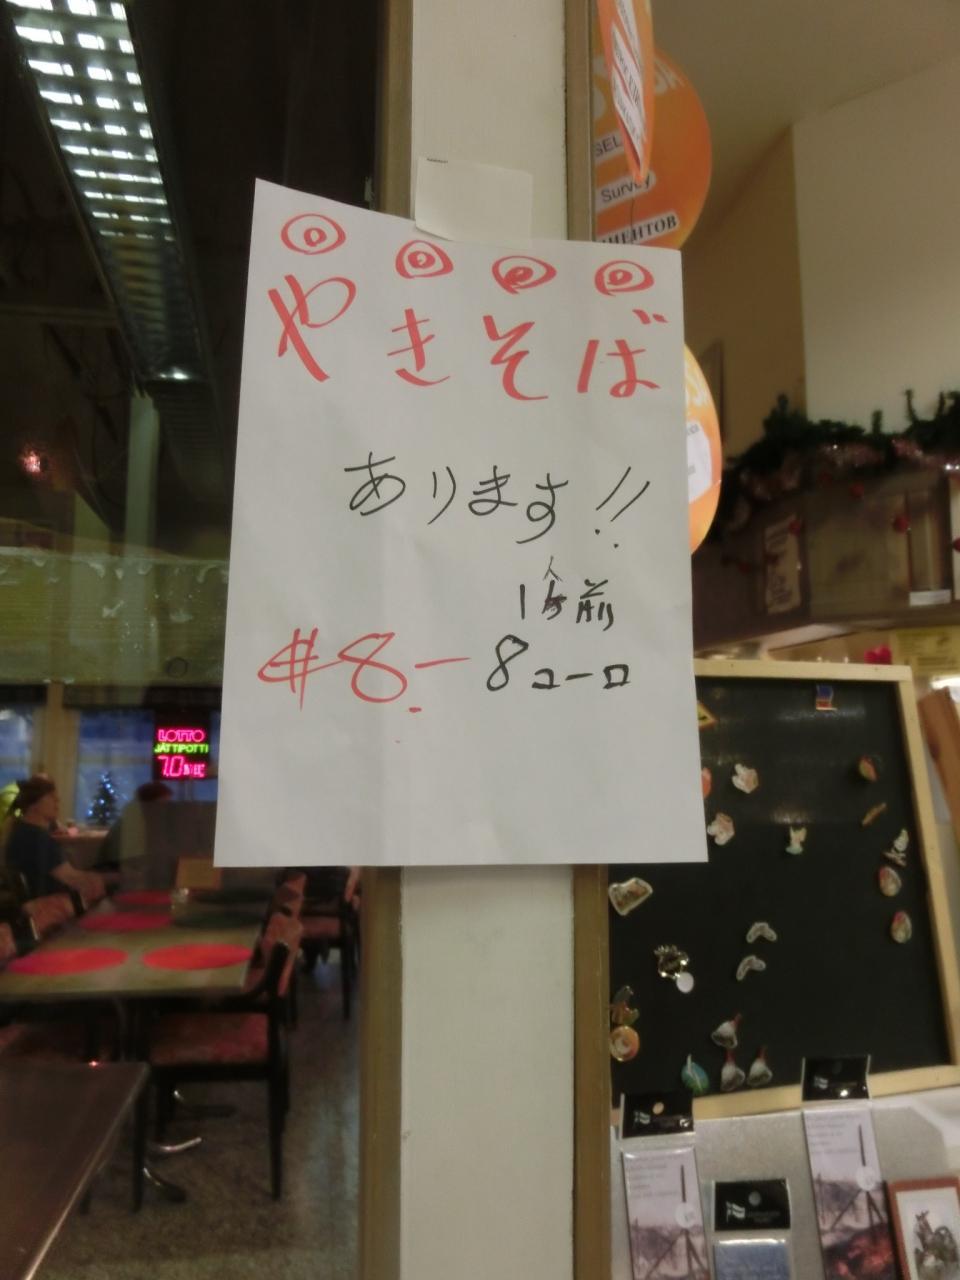 やきそば
あります!!
1人前
#8.- 8ユーロ
SEL
Survey
ИЕНТОВ
LOTTO
JÄTTIPOTTI
7.0